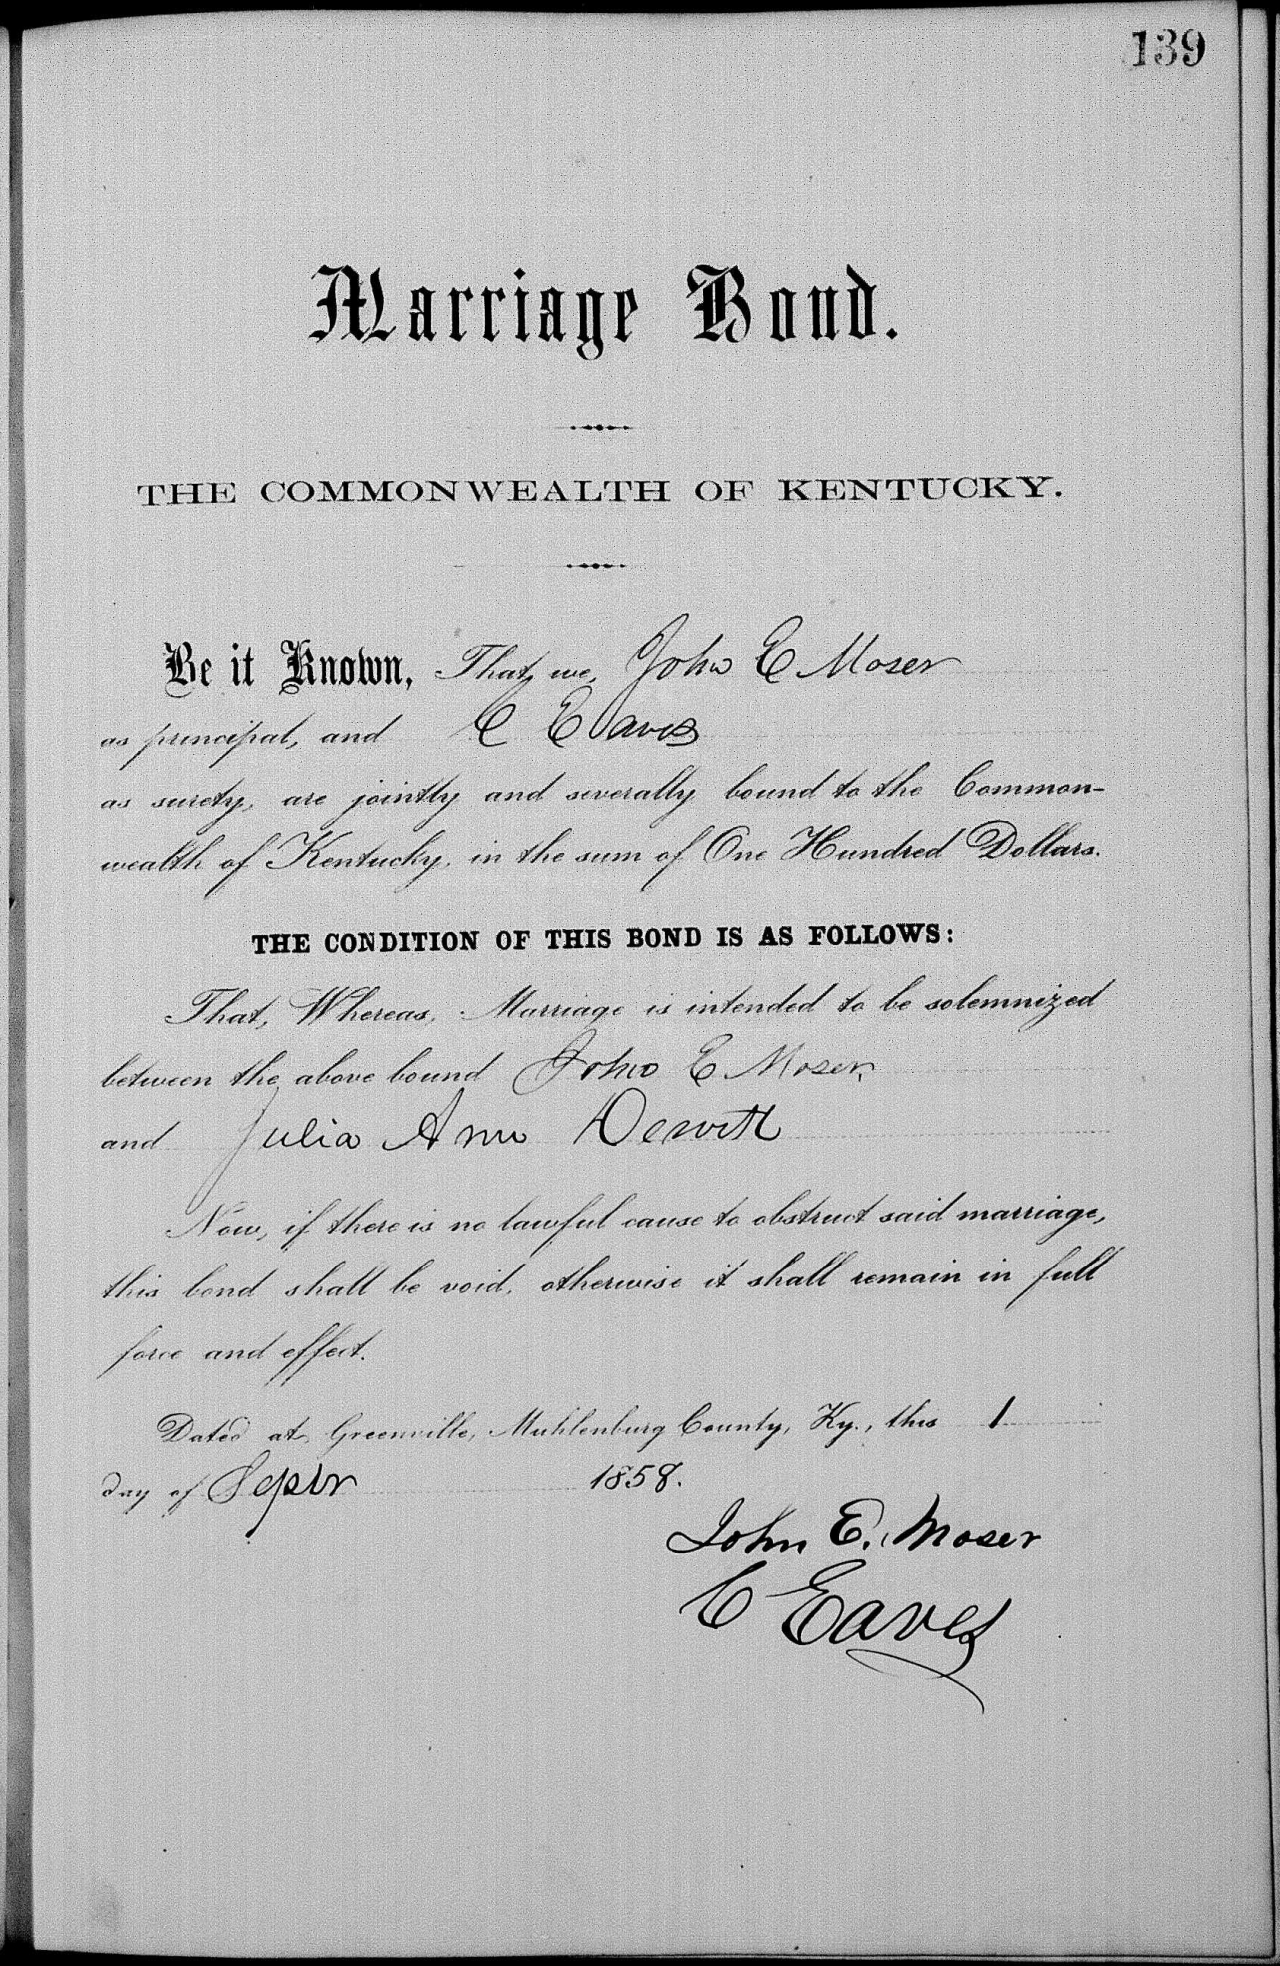 139
Marriage Bond.
THE COMMONWEALTH OF KENTUCKY.
Be it Known, That we, John E Moser
as principal, and C Eaves
as surety, are jointly and severally bound to the Common-
wealth of Kentucky, in the sum of One Hundred Dollars.
THE CONDITION OF THIS BOND IS AS FOLLOWS:
That, Whereas, Marriage is intended to be solemnized
between the above bound John E Moser
and Julia Ann Dewitt
Now, if there is no lawful cause to obstruct said marriage,
this bond shall be void, otherwise it shall remain in full
force and effect.
Dated at Greenville, Muhlenburg County, Ky., this 1
day of Septr 1858.
John E. Moser
C Eaves